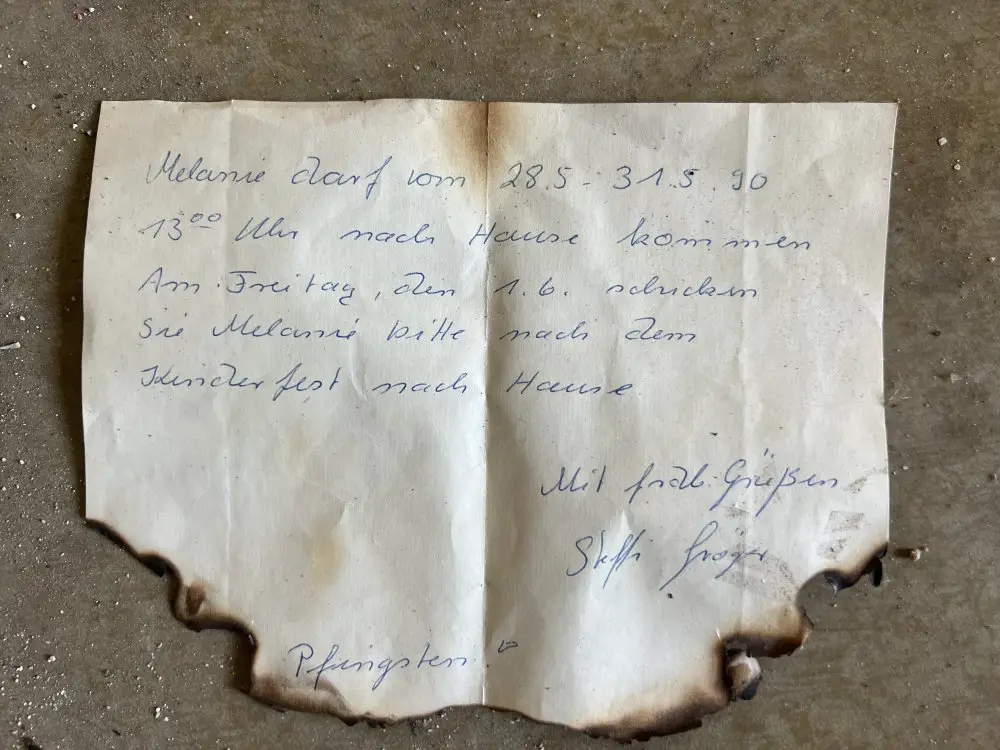 Melanie darf vom 28.5 - 31.5.90
13⁰⁰ Uhr nach Hause kommen
Am Freitag, den 1.6. schicken
Sie Melanie bitte nach dem
Kinderfest nach Hause
Mit frdl. Grüßen
Steffi Gröger
Pfingsten